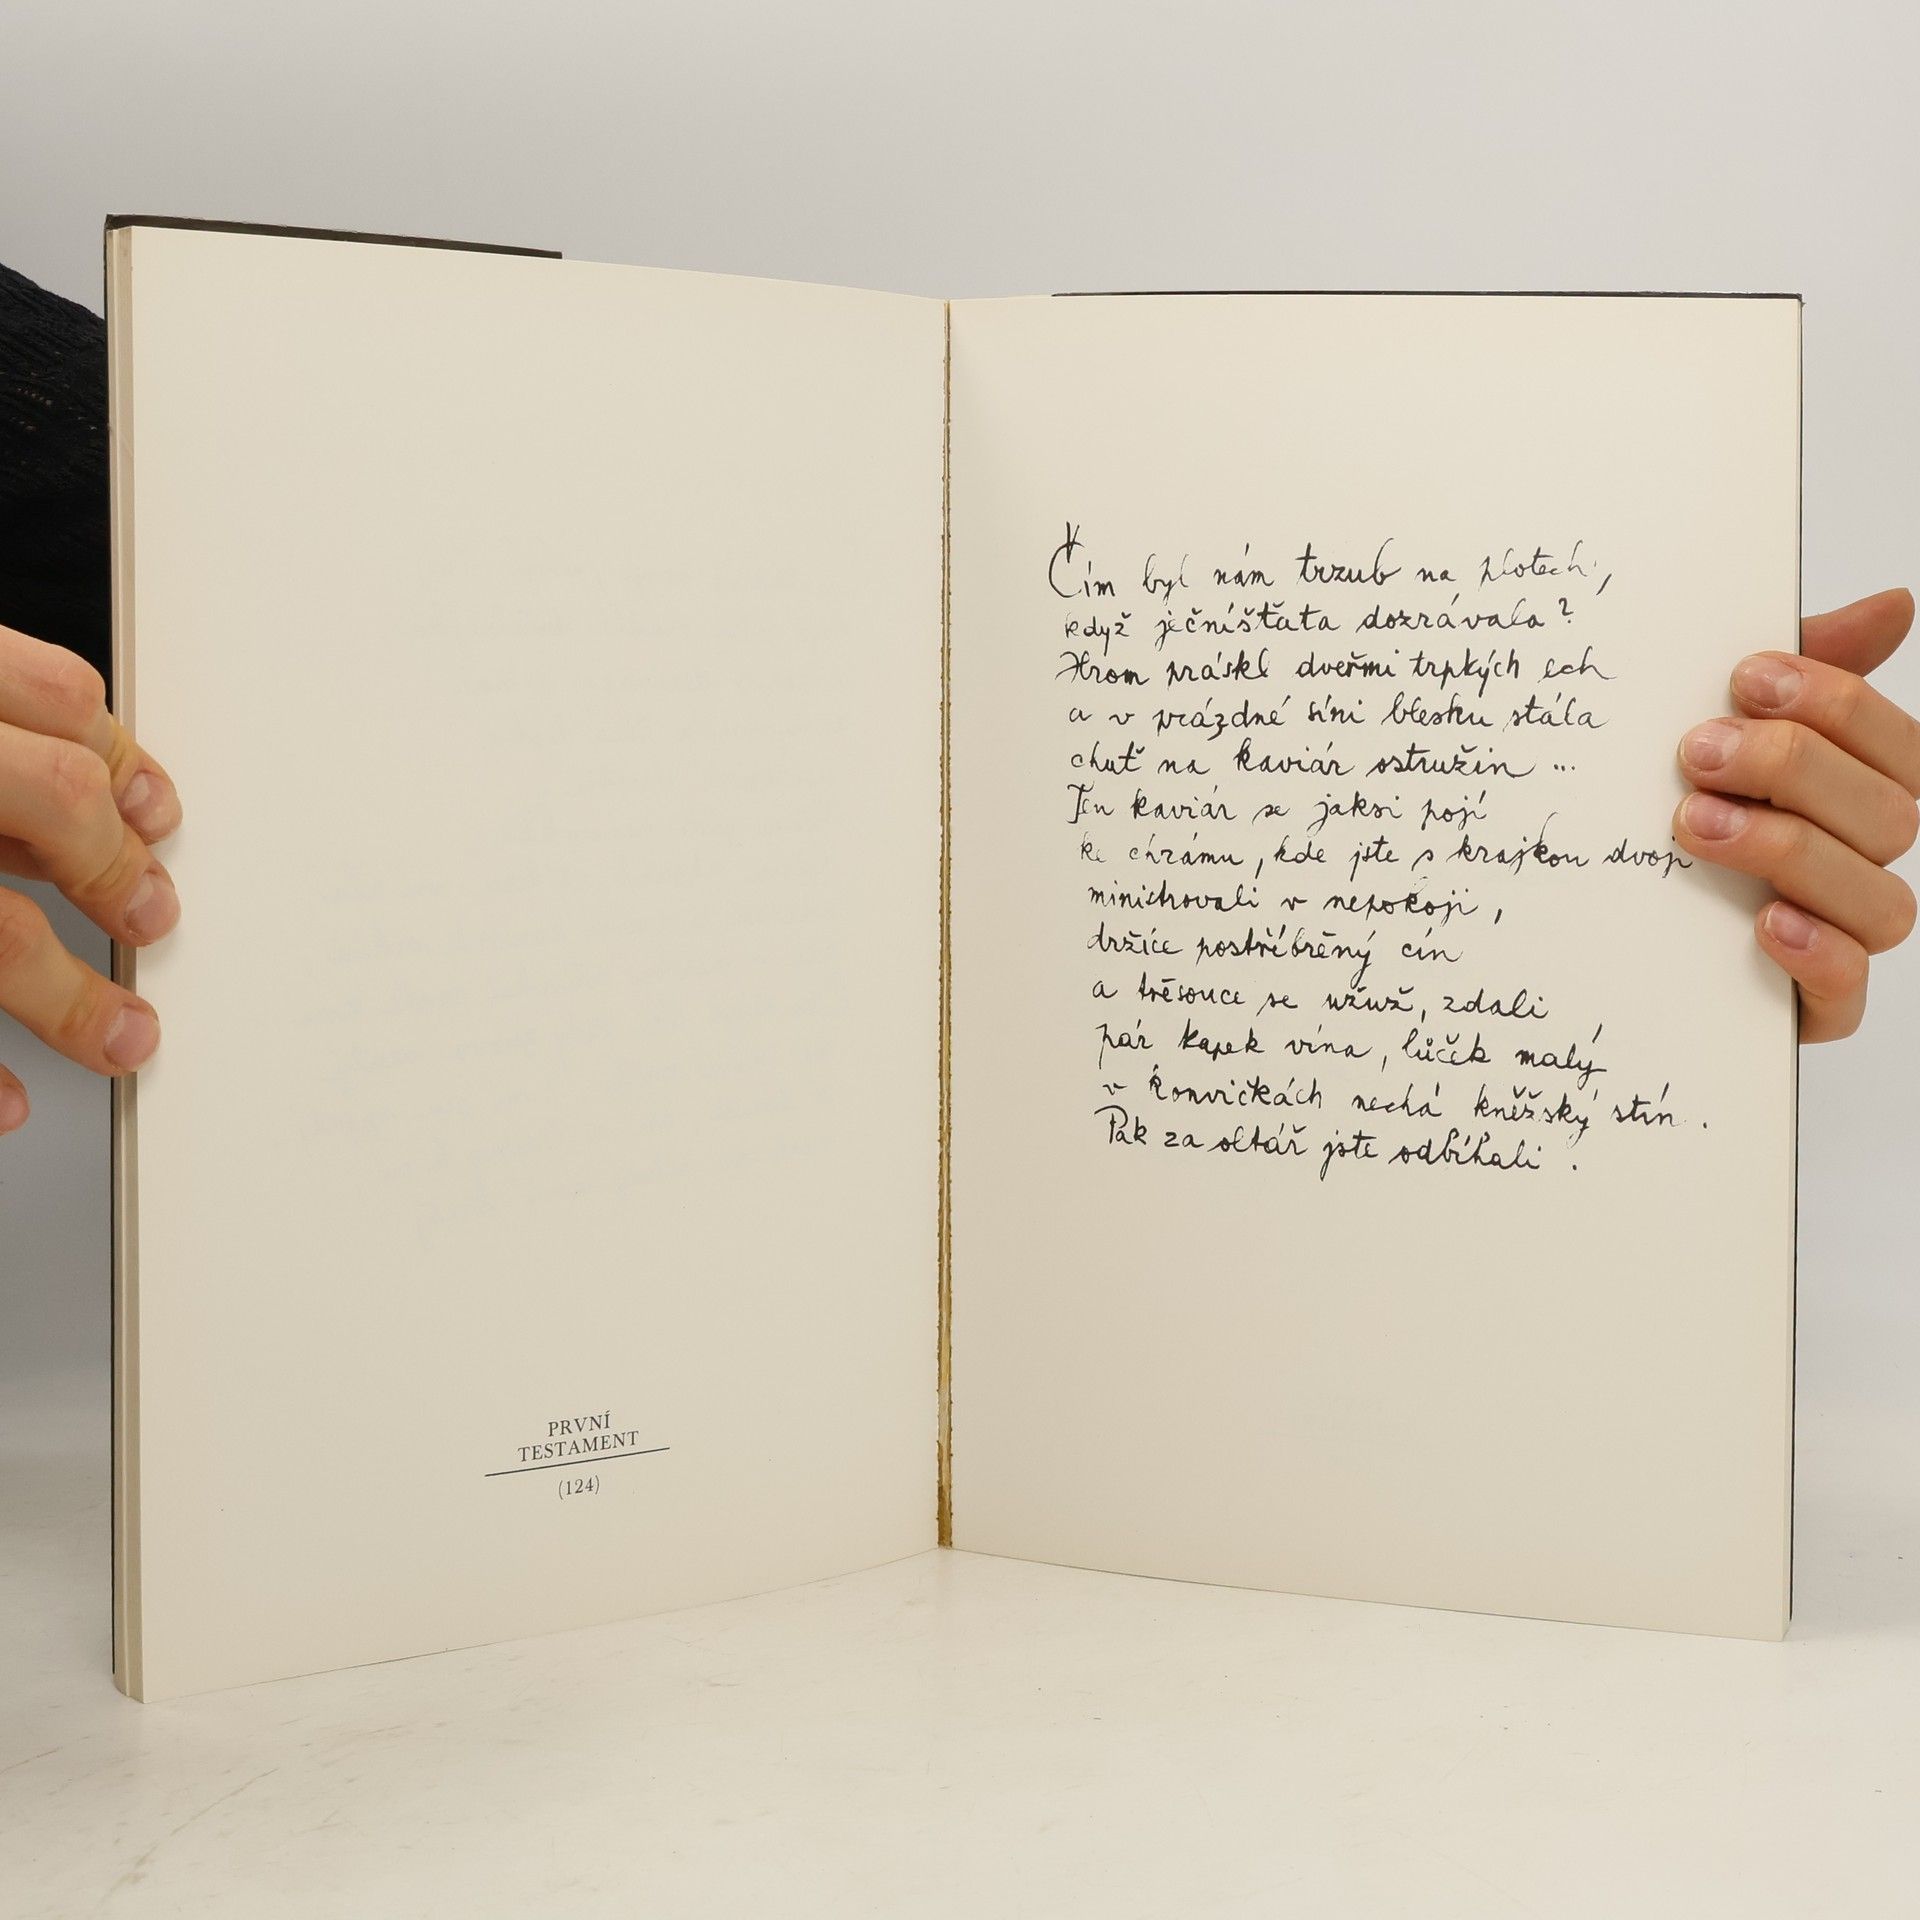 PRVNÍ
TESTAMENT
(124)
Čím byl nám trzub na plotech,
když ječníšťata dozrávala?
Hrom práskl dveřmi trpkých ech
a v prázdné síni blesku stála
chuť na kaviár ostružin ...
Ten kaviár se jaksi pojí
ke chrámu, kde jste s krajkou dvojí
ministrovali v nepokoji,
držíce postříbřený cín
a třesouce se užuž, zdali
pár kapek vína, lůček malý
v konvičkách nechá kněžský stín.
Pak za oltář jste odbíhali.